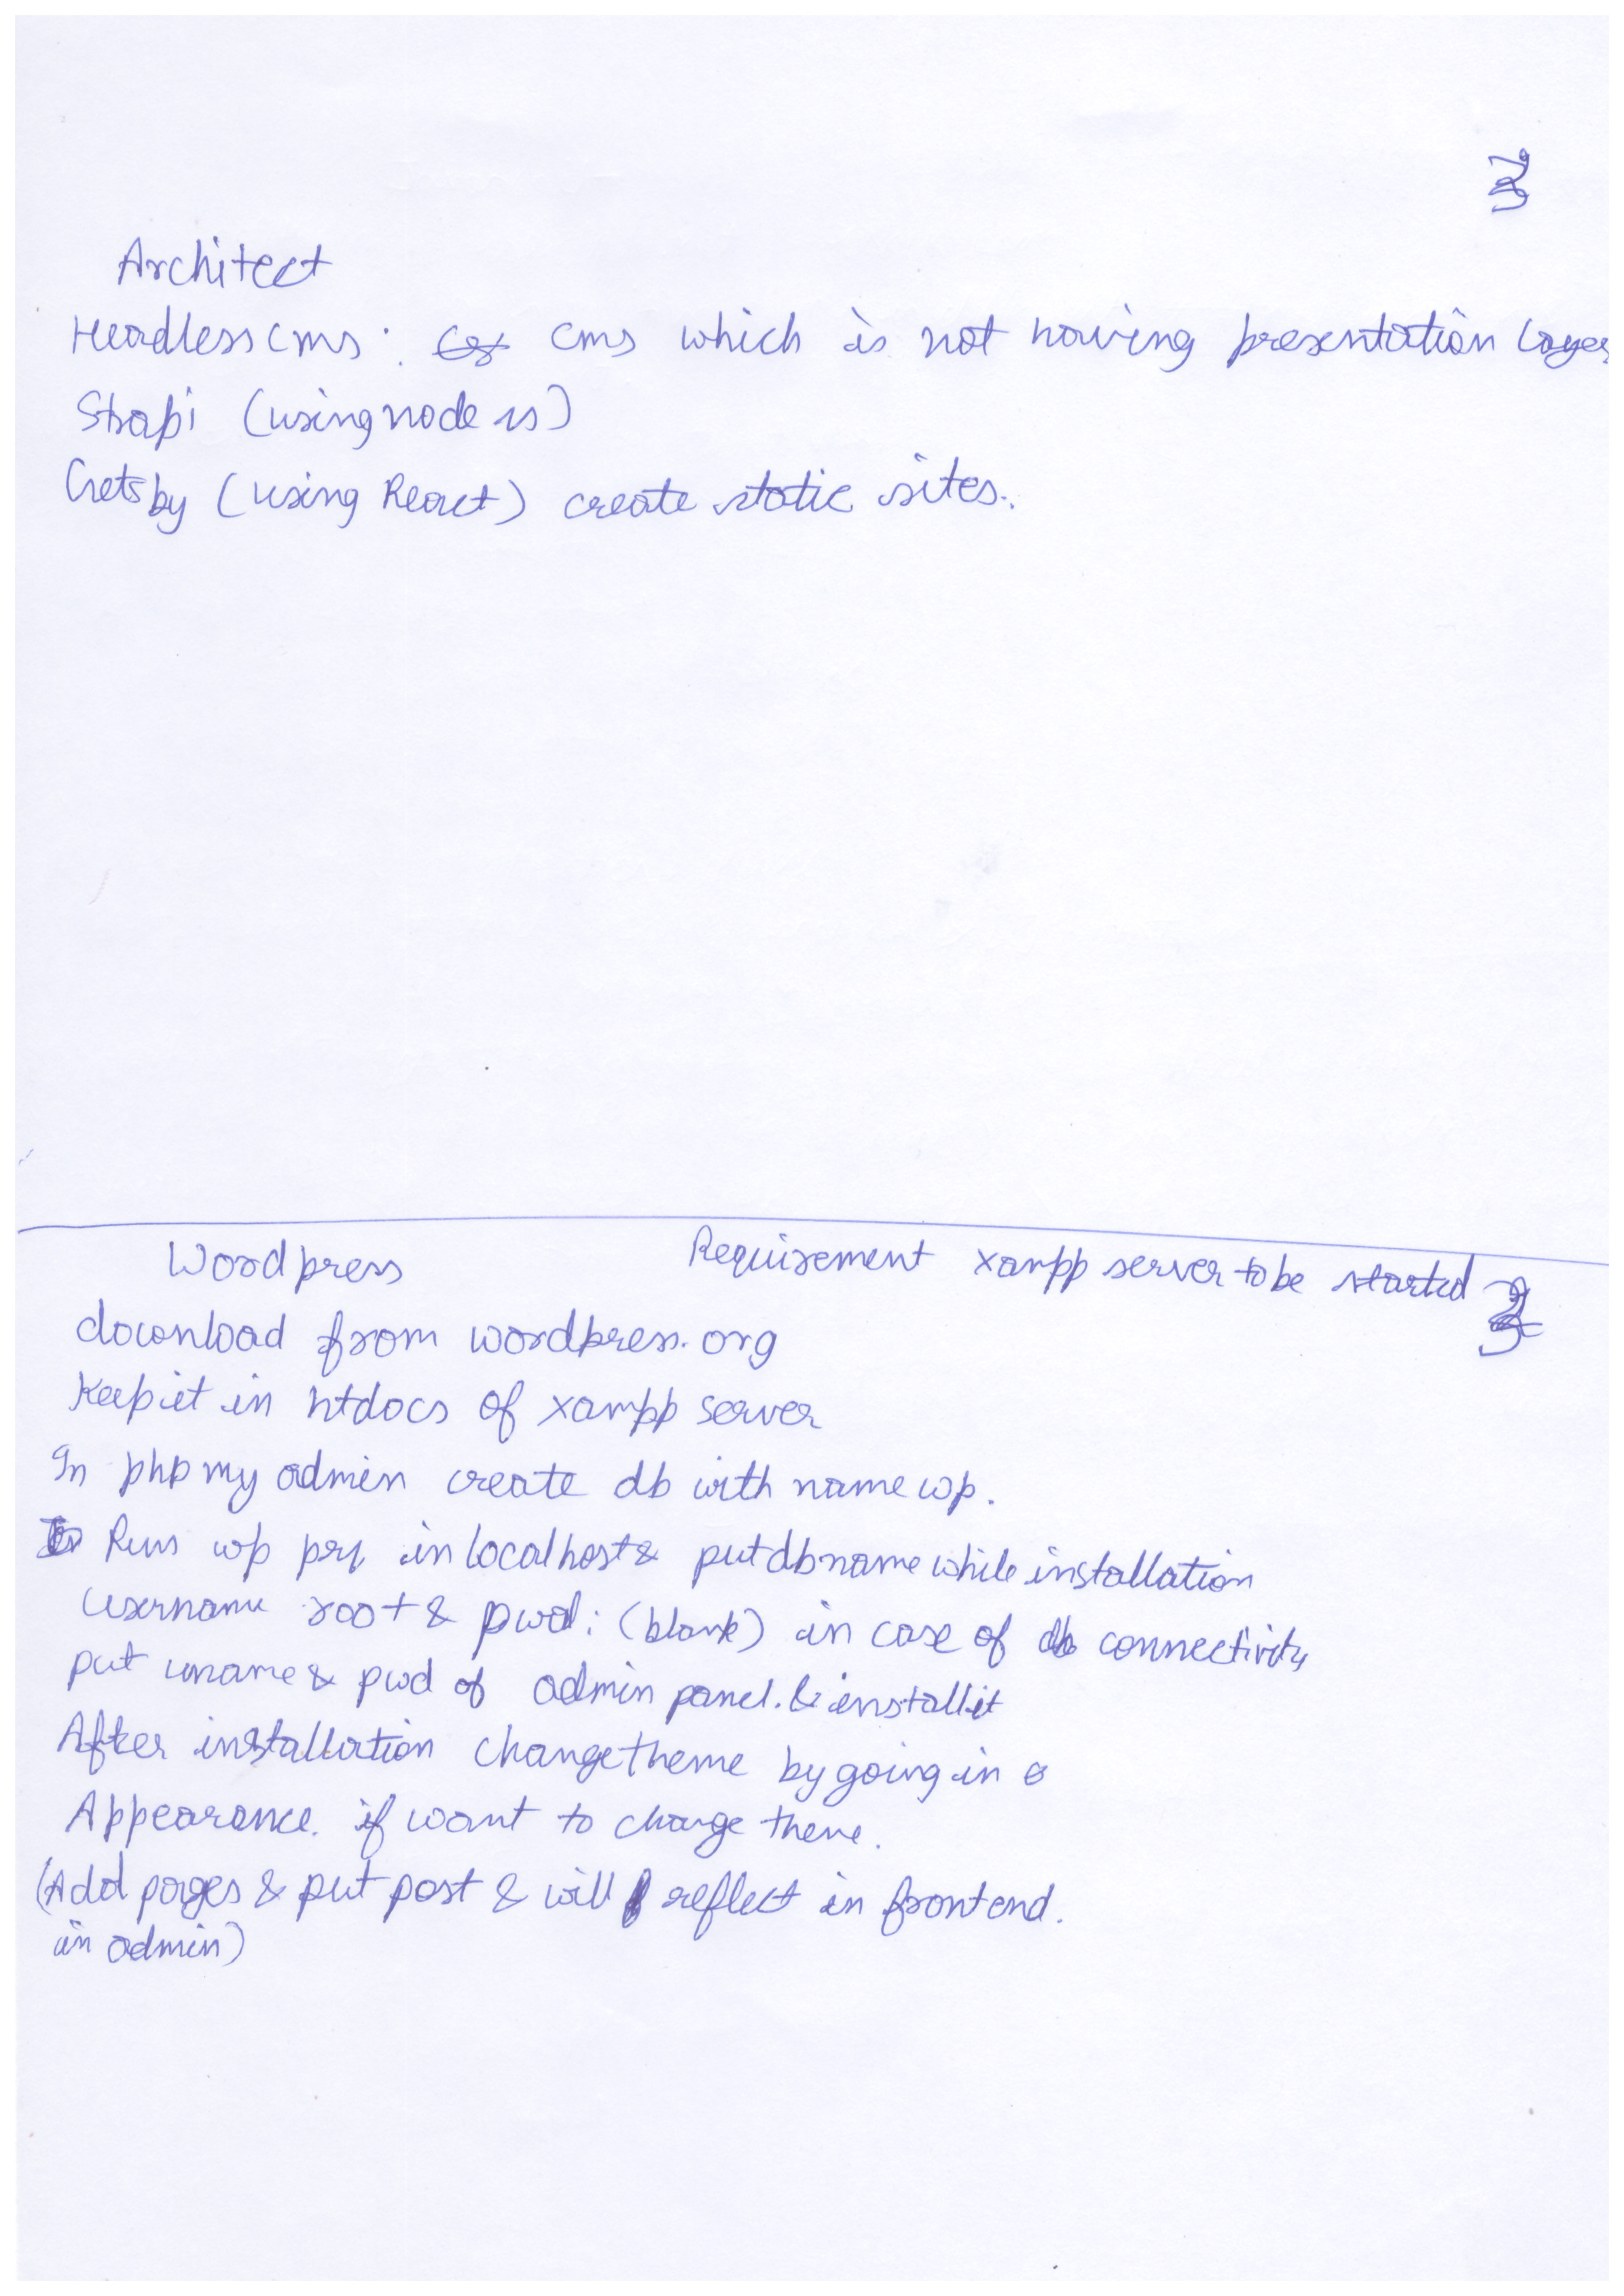 3
Architect
Headless cms : cms which is not having presentation layer
Strapi (using node js)
Gatsby (using React) create static sites.
Wordpress Requirement xampp server to be started 3
download from wordpress.org
Keep it in htdocs of xampp server
In php my admin create db with name wp.
Run wp prj in localhost & put db name while installation
Username root & pwd : (blank) in case of db connectivity
put uname & pwd of admin panel. & install it
After installation change theme by going in
Appearance. if want to change theme.
(Add pages & put post & will reflect in front end.
in admin)